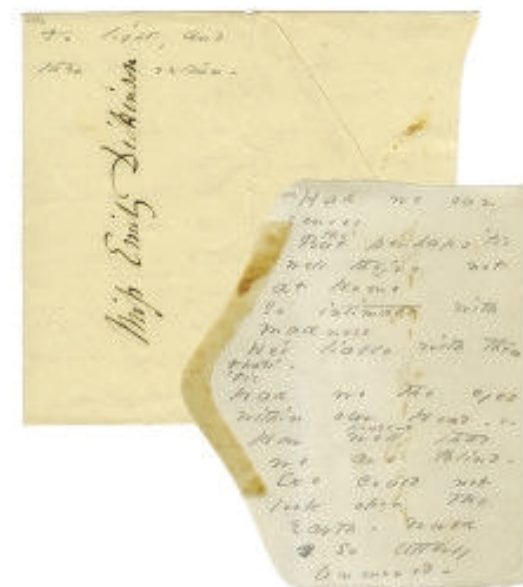 to light, and
Miss Emily Dickinson
Had we our
senses
But perhaps 'tis
well they're not
at Home
So intimate with
Madness
liable with them
that's
'tis
Had we the eyes
within our Head - -
How well that
we are Blind -
We could not
look upon the
Earth -
So utterly
unmoved -